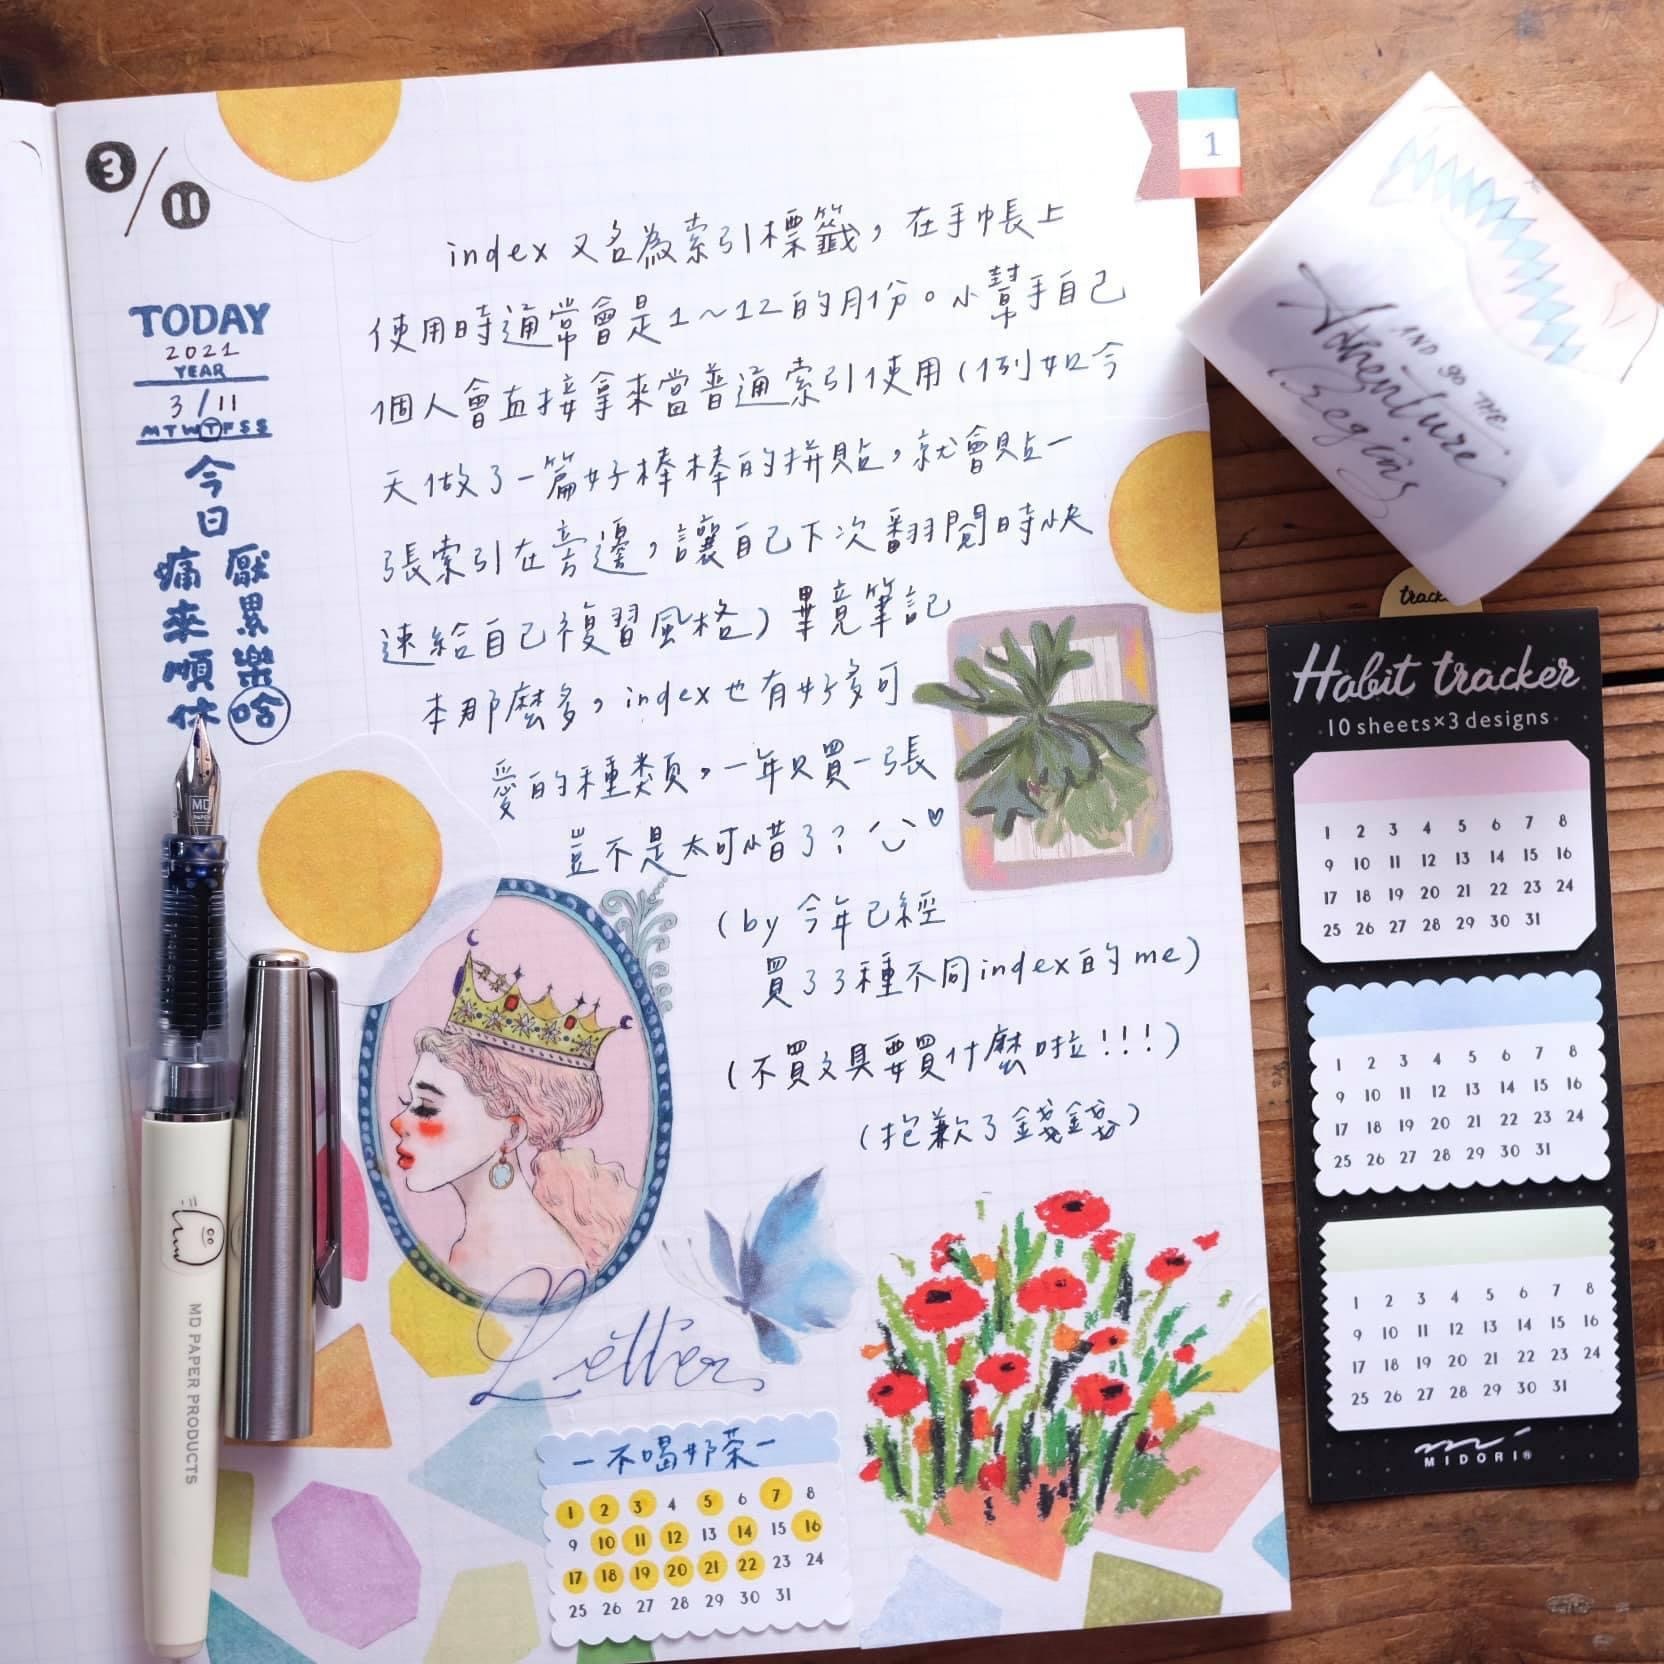 3/11
TODAY
2021
YEAR
3/11
MTWTFSS
今日
厭累樂啥
痛來順休
1
index 又名為索引標籤，在手帳上
使用時通常會是1～12的月份。小幫手自己
個人會直接拿來當普通索引使用(例如今
天做了一篇好棒棒的拼貼，就會貼一
張索引在旁邊，讓自己下次翻閱時快
速給自己複習風格)畢竟筆記
本那麼多，index也有好多可
愛的種類，一年只買一張
豈不是太可惜了？
(by 今年已經
買了3種不同index的me)
(不買文具要買什麼啦!!!)
(抱歉了錢錢)
Letter
一不喝奶茶一
1 2 3 4 5 6 7 8
9 10 11 12 13 14 15 16
17 18 19 20 21 22 23 24
25 26 27 28 29 30 31
MD
PAPER
MD PAPER PRODUCTS
AND go THE
Adventure
Begins
Habit tracker
10 sheets×3 designs
1 2 3 4 5 6 7 8
9 10 11 12 13 14 15 16
17 18 19 20 21 22 23 24
25 26 27 28 29 30 31
1 2 3 4 5 6 7 8
9 10 11 12 13 14 15 16
17 18 19 20 21 22 23 24
25 26 27 28 29 30 31
1 2 3 4 5 6 7 8
9 10 11 12 13 14 15 16
17 18 19 20 21 22 23 24
25 26 27 28 29 30 31
MIDORI